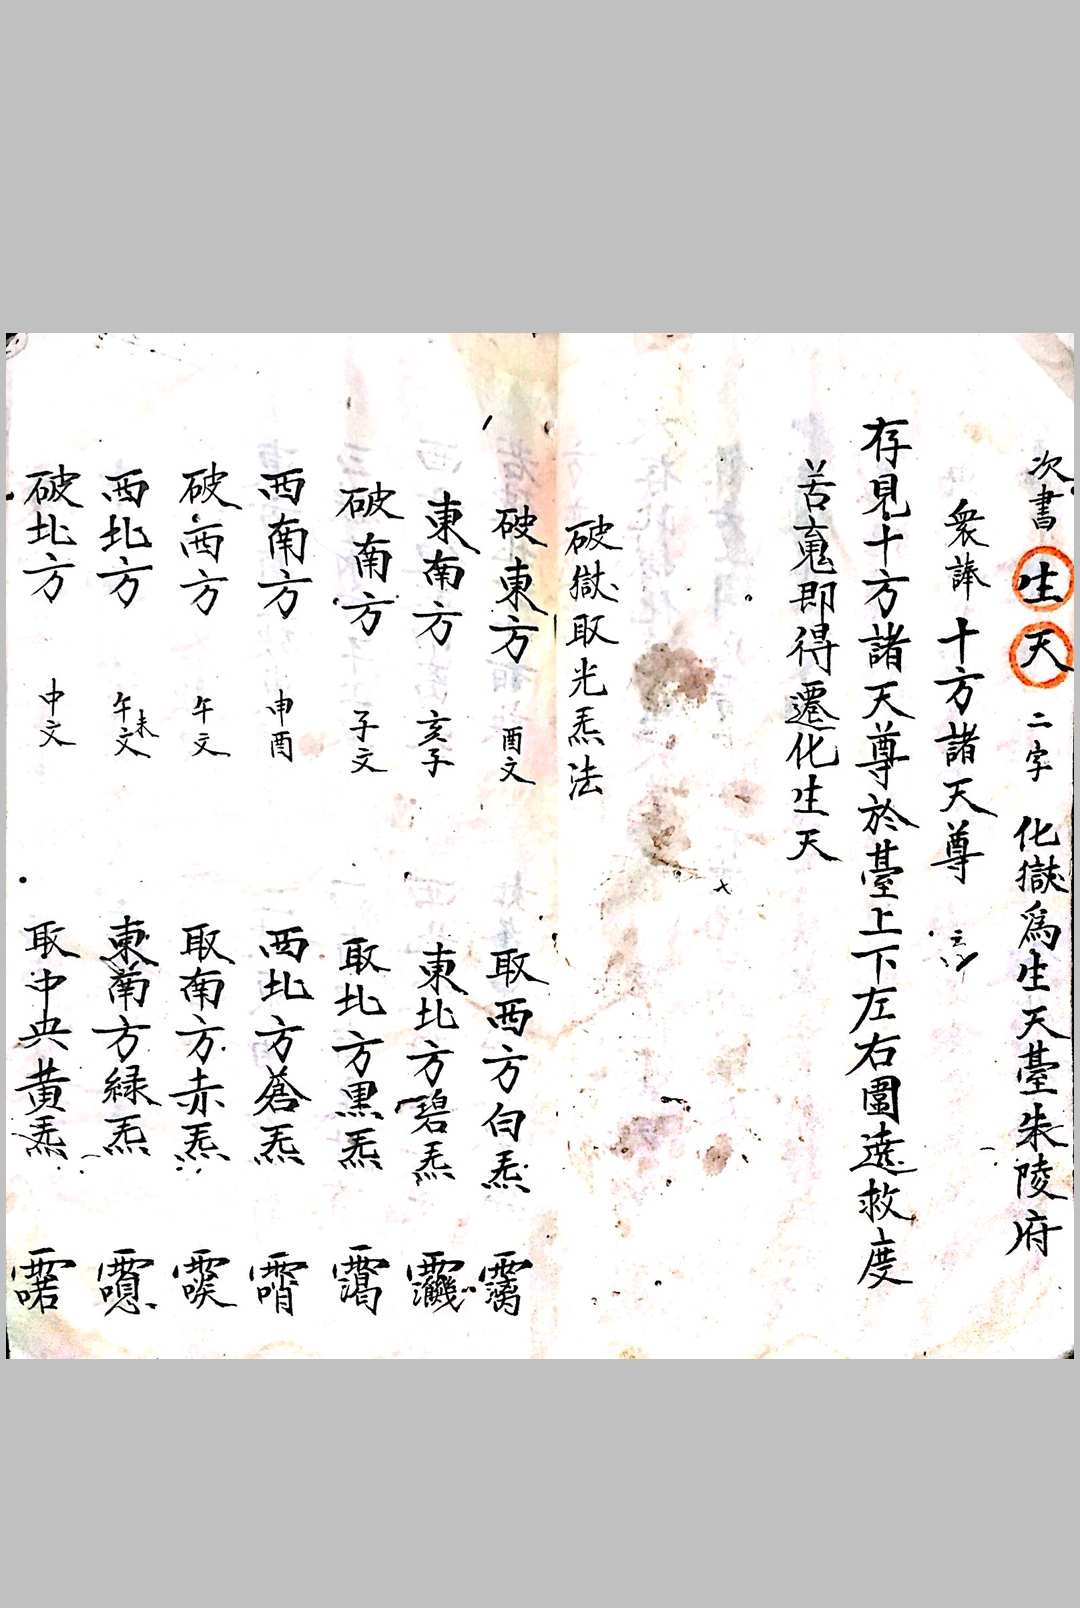 次書生天二字 化獄為生天臺朱陵府
衆諱 十方諸天尊
存見十方諸天尊於臺上下左右圍遶救度
苦䰟即得遷化生天
破獄取光炁法
破東方 酉文 取西方白炁
東南方 亥子 東北方碧炁
破南方 子文 取北方黒炁
西南方 申酉 西北方蒼炁
破西方 午文 取南方赤炁
西北方 午未文 東南方緑炁
破北方 中文 取中央黄炁